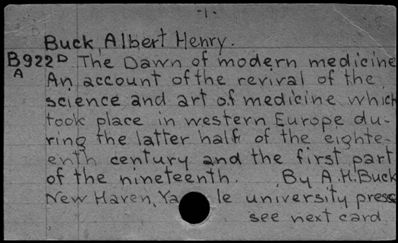 -1-
Buck, Albert Henry.
B922D The Dawn of modern medicine
A An account of the revival of the
science and art of medicine which
took place in western Europe du-
ring the latter half of the eighte-
enth century and the first part
of the nineteenth. By A.H. Buck
New Haven, Ya le university press
see next card.